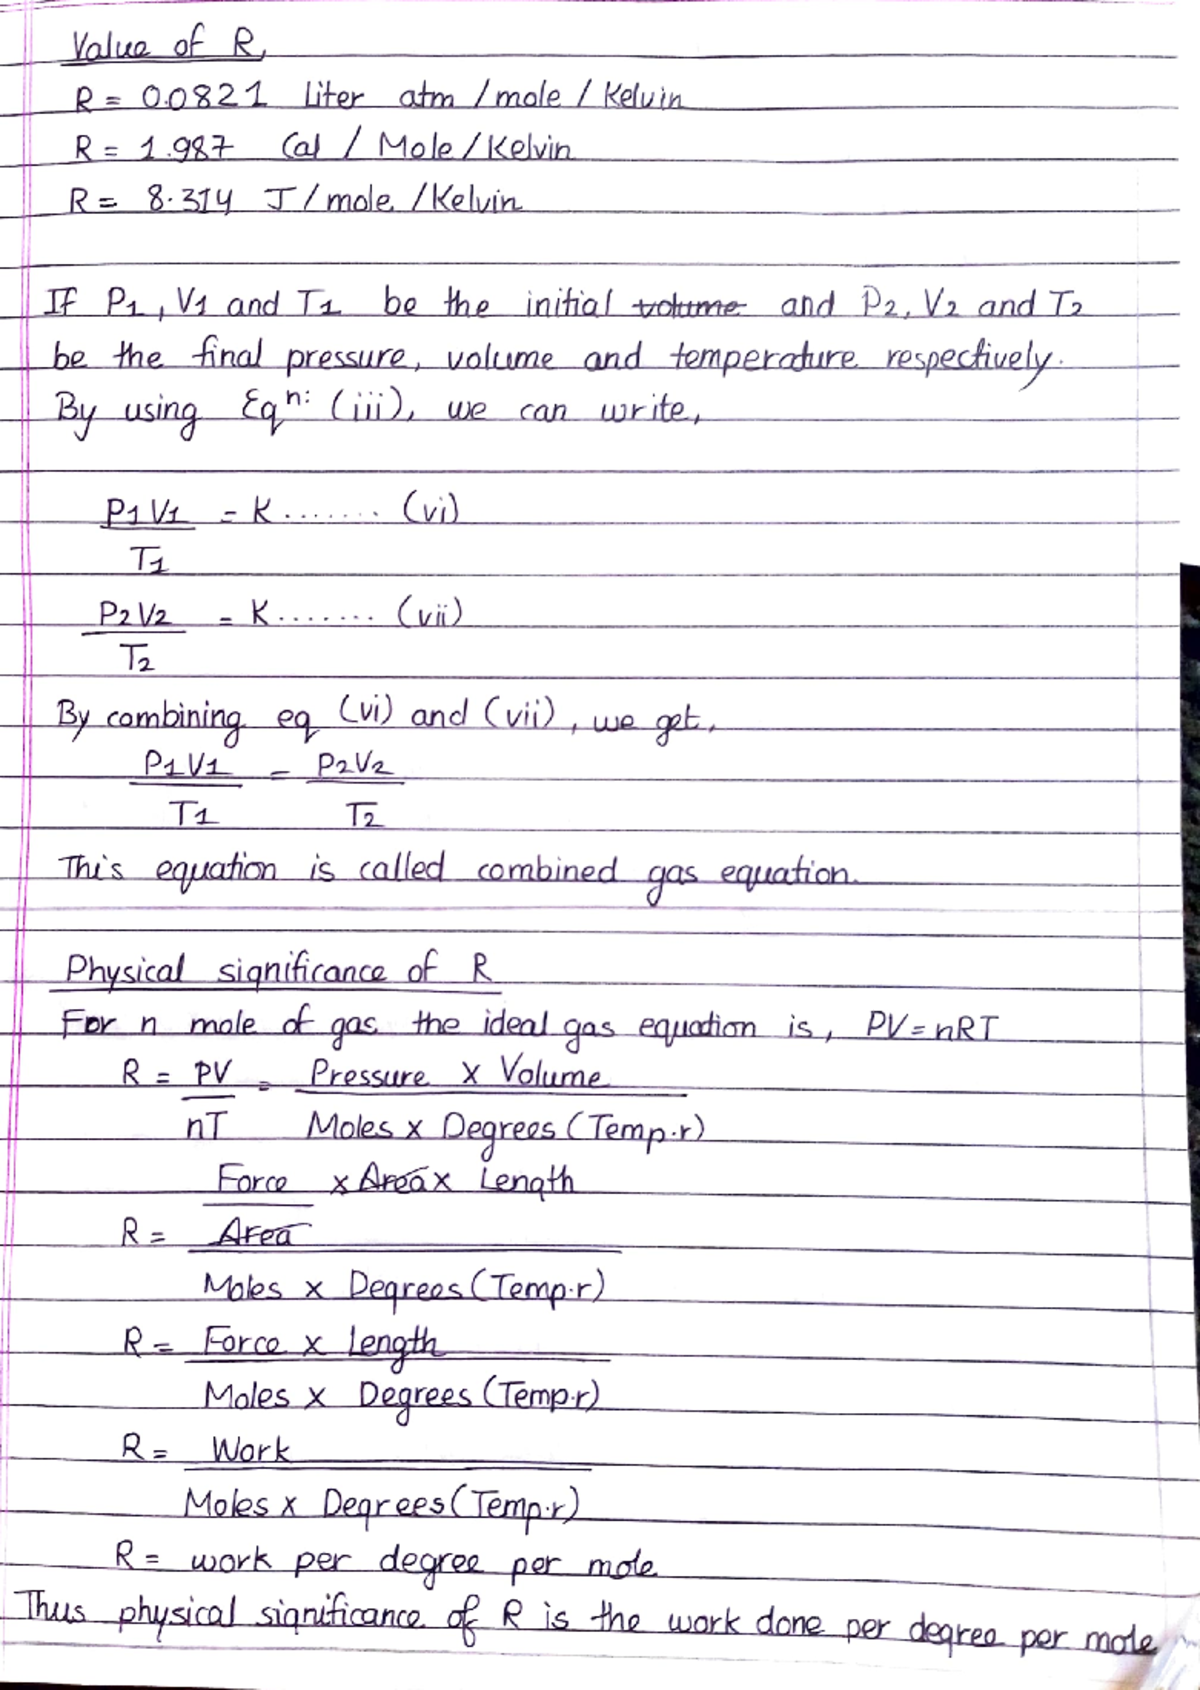 Value of R,
R = 0.0821 liter atm / mole / Kelvin
R = 1.987 Cal / Mole / Kelvin
R = 8.314 J / mole / Kelvin
If P1, V1 and T1 be the initial volume and P2, V2 and T2
be the final pressure, volume and temperature respectively.
By using Eqn: (iii), we can write,
P1 V1 = K ....... (vi)
T1
P2 V2 = K ....... (vii)
T2
By combining eq (vi) and (vii), we get,
P1V1 = P2V2
T1 T2
This equation is called combined gas equation.
Physical significance of R
For n mole of gas the ideal gas equation is, PV = nRT
R = PV = Pressure x Volume
nT Moles x Degrees (Temp.r)
Force x Area x Length
R = Area
Moles x Degrees (Temp.r)
R = Force x Length
Moles x Degrees (Temp.r)
R = Work
Moles x Degrees (Temp.r)
R = work per degree per mole
Thus physical significance of R is the work done per degree per mole